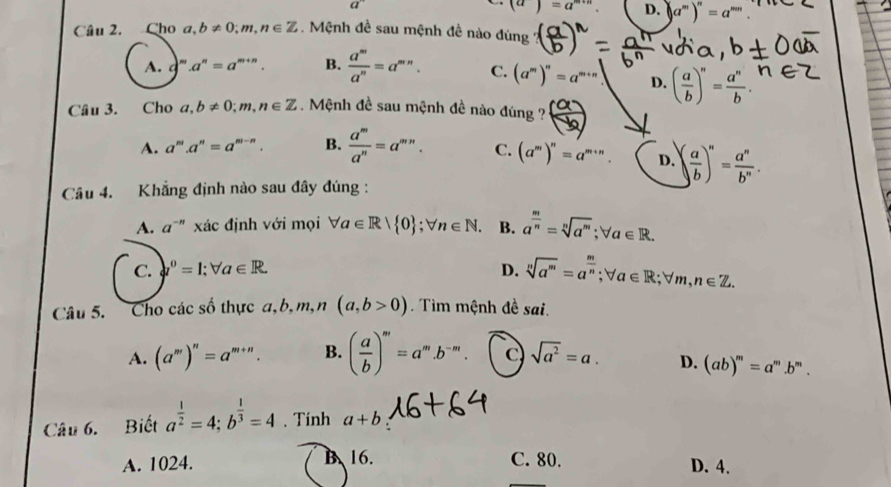 (aᵐ)ⁿ = aᵐⁿ.
D.
Câu 2. Cho a, b ≠ 0; m, n ∈ ℤ. Mệnh đề sau mệnh đề nào đúng ? (a/b)ⁿ = aⁿ/bⁿ với a, b ≠ 0 và
n ∈ Z
A. aᵐ.aⁿ = aᵐ⁺ⁿ. B. aᵐ/aⁿ = aᵐⁿ. C. (aᵐ)ⁿ = aᵐ⁺ⁿ. D. (a/b)ⁿ = aⁿ/b.
Câu 3. Cho a, b ≠ 0; m, n ∈ ℤ. Mệnh đề sau mệnh đề nào đúng ? (a/b)
A. aᵐ.aⁿ = aᵐ⁻ⁿ. B. aᵐ/aⁿ = aᵐⁿ. C. (aᵐ)ⁿ = aᵐ⁺ⁿ. D. (a/b)ⁿ = aⁿ/bⁿ.
Câu 4. Khẳng định nào sau đây đúng :
A. a⁻ⁿ xác định với mọi ∀a ∈ ℝ \ {0}; ∀n ∈ ℕ. B. a^(m/n) = ⁿ√(aᵐ); ∀a ∈ ℝ.
C. a⁰ = 1; ∀a ∈ ℝ. D. ⁿ√(aᵐ) = a^(m/n); ∀a ∈ ℝ; ∀m, n ∈ ℤ.
Câu 5. Cho các số thực a, b, m, n (a, b > 0). Tìm mệnh đề sai.
A. (aᵐ)ⁿ = aᵐ⁺ⁿ. B. (a/b)ᵐ = aᵐ.b⁻ᵐ. C. √(a²) = a. D. (ab)ᵐ = aᵐ.bᵐ.
Câu 6. Biết a^(1/2) = 4; b^(1/3) = 4. Tính a + b. 16+64
A. 1024. B. 16. C. 80. D. 4.